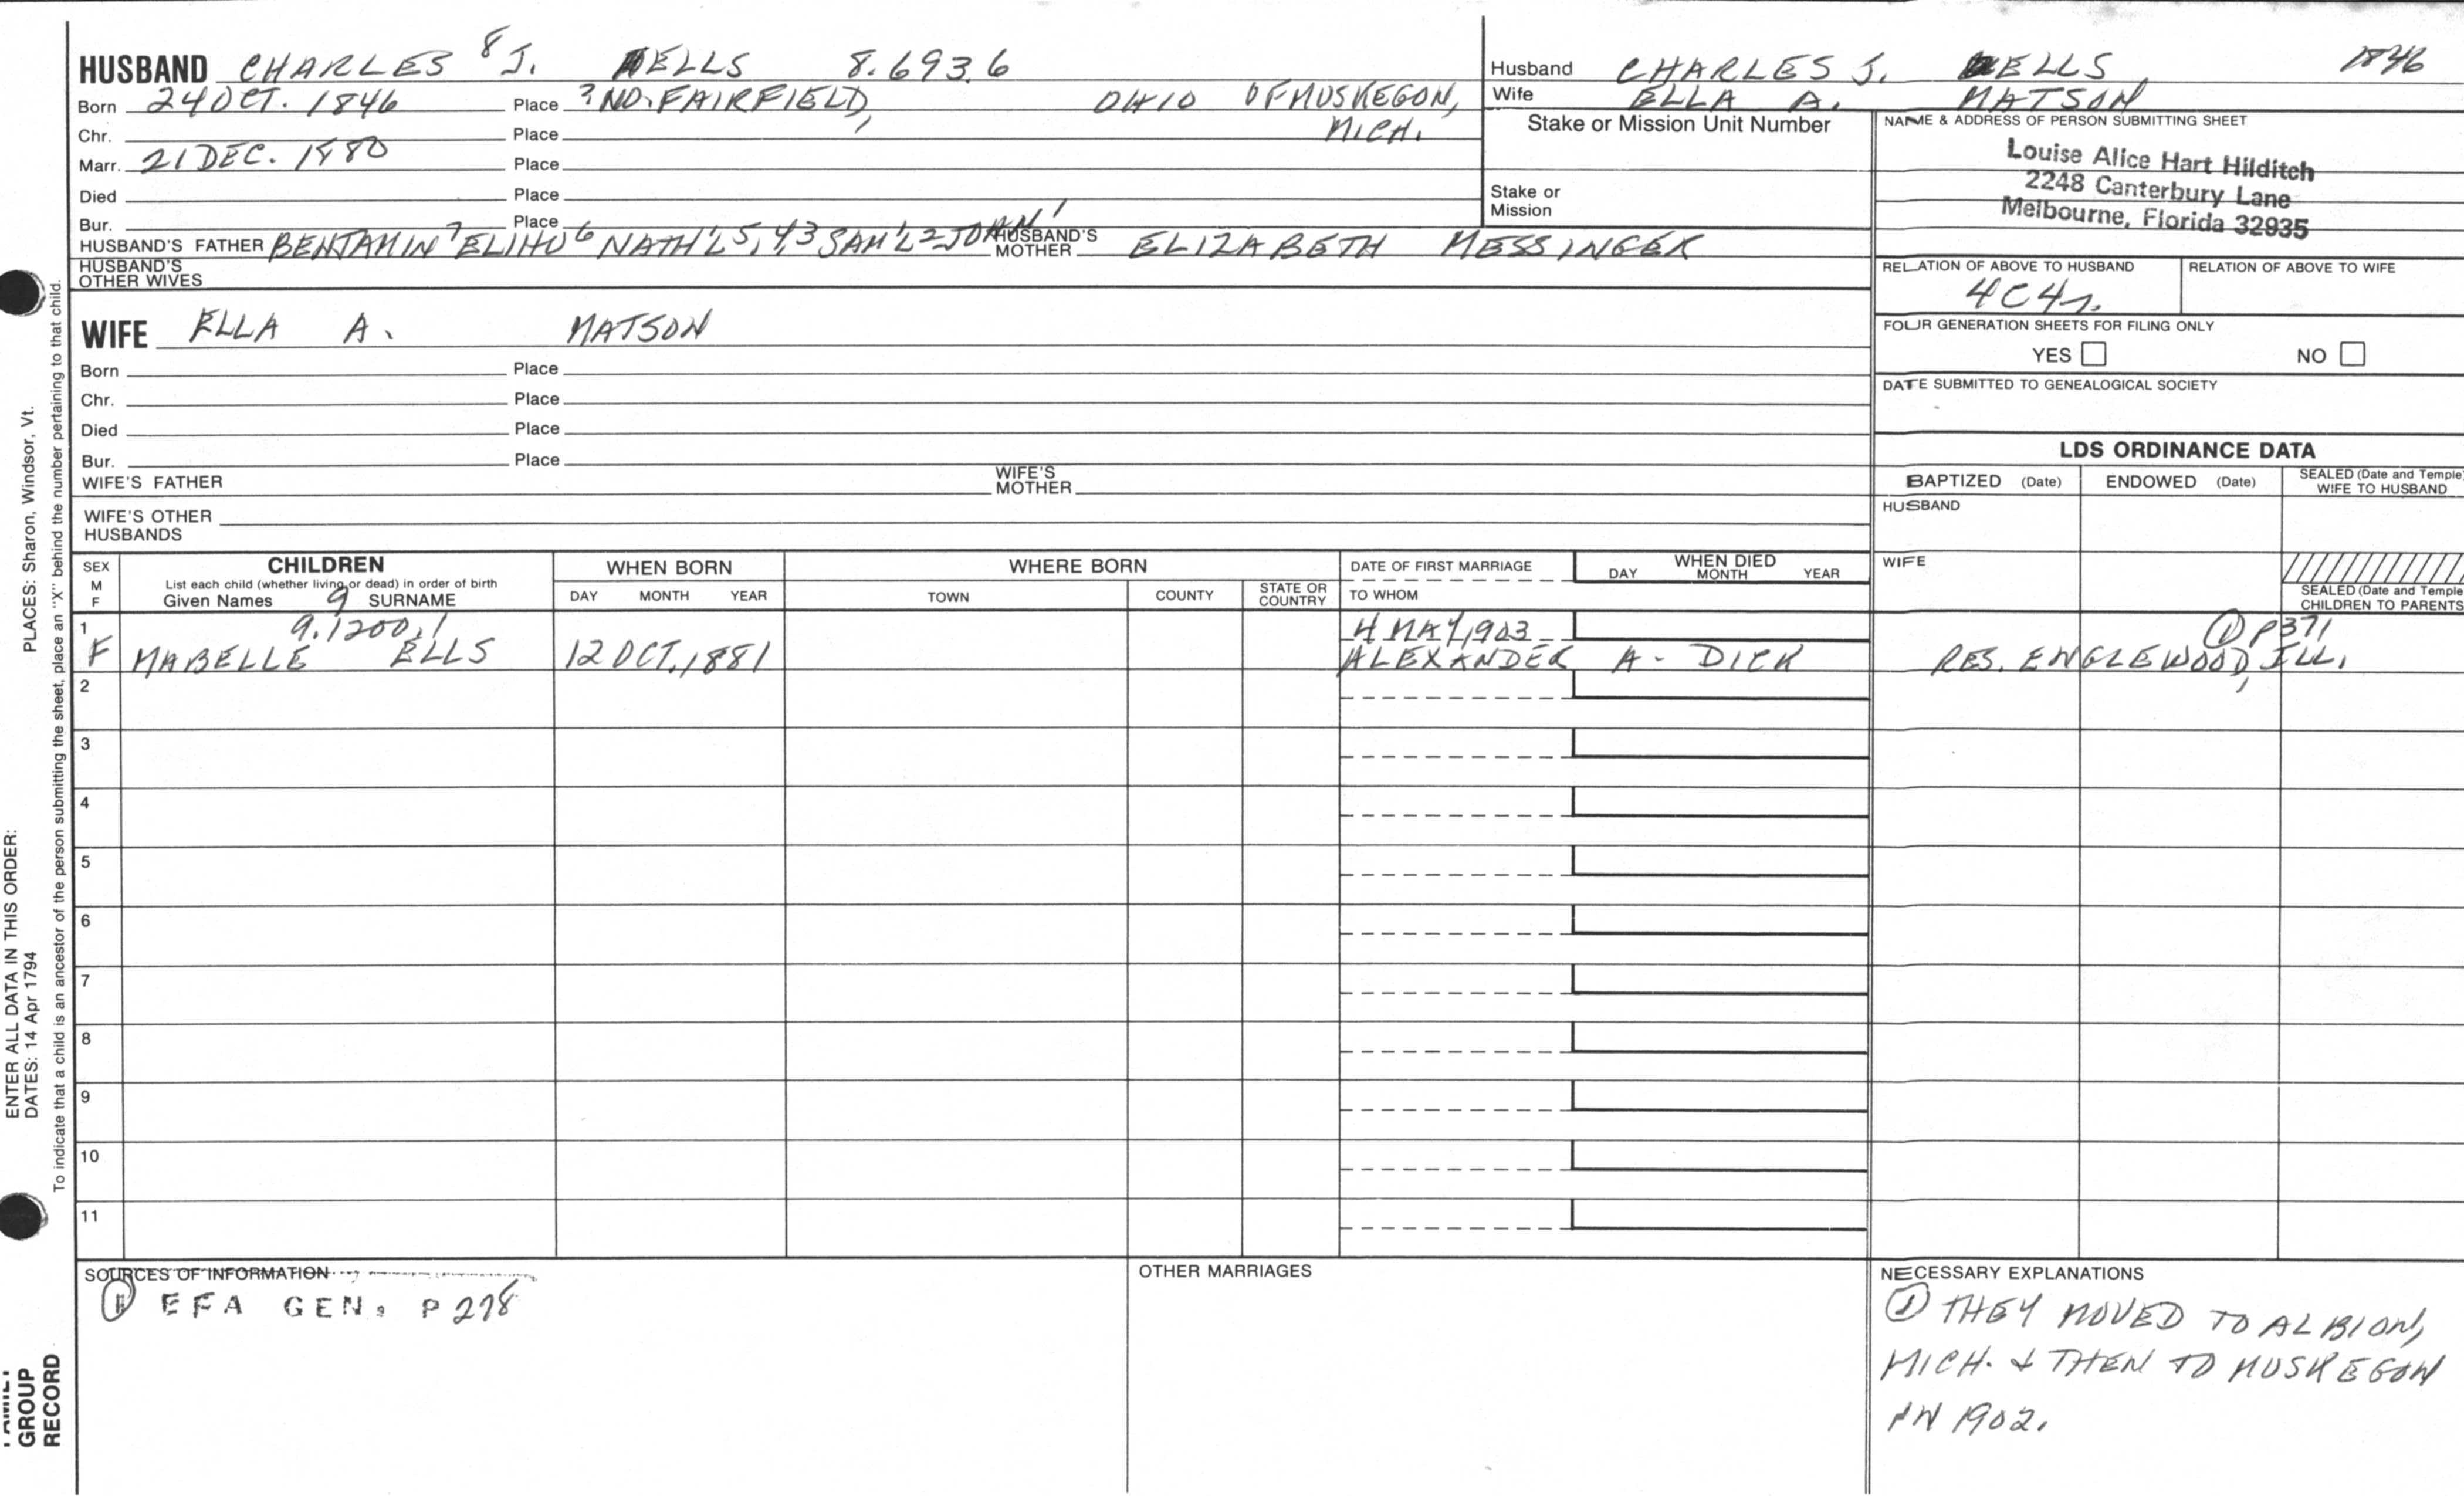 HUSBAND CHARLES 8 J. ELLS 8.693.6
Born 24 OCT. 1846 Place ? NO. FAIRFIELD, OHIO OF MUSKEGON,
Chr. Place MICH.
Marr. 21 DEC. 1880 Place
Died Place
Bur. Place
HUSBAND'S FATHER BENJAMIN 7 ELIHU 6 NATH'L 5,4,3 SAM'L 2 JOHN 1 HUSBAND'S MOTHER ELIZABETH MESSINGER
HUSBAND'S OTHER WIVES
Husband CHARLES J. ELLS 1846
Wife ELLA A. MATSON
Stake or Mission Unit Number
Stake or Mission
NAME & ADDRESS OF PERSON SUBMITTING SHEET
Louise Alice Hart Hilditch
2248 Canterbury Lane
Melbourne, Florida 32935
RELATION OF ABOVE TO HUSBAND RELATION OF ABOVE TO WIFE
4C4r.
FOUR GENERATION SHEETS FOR FILING ONLY
YES NO
DATE SUBMITTED TO GENEALOGICAL SOCIETY
WIFE ELLA A. MATSON
Born Place
Chr. Place
Died Place
Bur. Place
WIFE'S FATHER WIFE'S MOTHER
WIFE'S OTHER HUSBANDS
LDS ORDINANCE DATA
BAPTIZED (Date) ENDOWED (Date) SEALED (Date and Temple) WIFE TO HUSBAND
HUSBAND
WIFE
SEALED (Date and Temple) CHILDREN TO PARENTS
SEX M F CHILDREN WHEN BORN WHERE BORN DATE OF FIRST MARRIAGE WHEN DIED
List each child (whether living or dead) in order of birth
Given Names 9 SURNAME DAY MONTH YEAR TOWN COUNTY STATE OR COUNTRY TO WHOM DAY MONTH YEAR
1 9.1200.1 4 MAY 1903 ① P371
F MABELLE ELLS 12 OCT. 1881 ALEXANDER A. DICK RES. ENGLEWOOD, ILL.
2
3
4
5
6
7
8
9
10
11
SOURCES OF INFORMATION
① EFA GEN. P 278
OTHER MARRIAGES
NECESSARY EXPLANATIONS
① THEY MOVED TO ALBION,
MICH. & THEN TO MUSKEGON
IN 1902.
PLACES: Sharon, Windsor, Vt.
ENTER ALL DATA IN THIS ORDER:
DATES: 14 Apr 1794
To indicate that a child is an ancestor of the person submitting the sheet, place an "X" behind the number pertaining to that child.
FAMILY
GROUP
RECORD